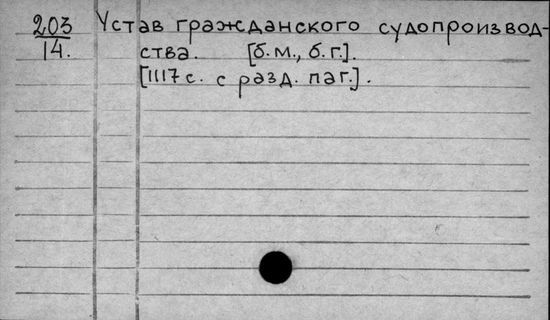 203 Устав гражданского судопроизвод-
14. ства. [б.м., б.г.].
[1117 с. с разд. паг.].